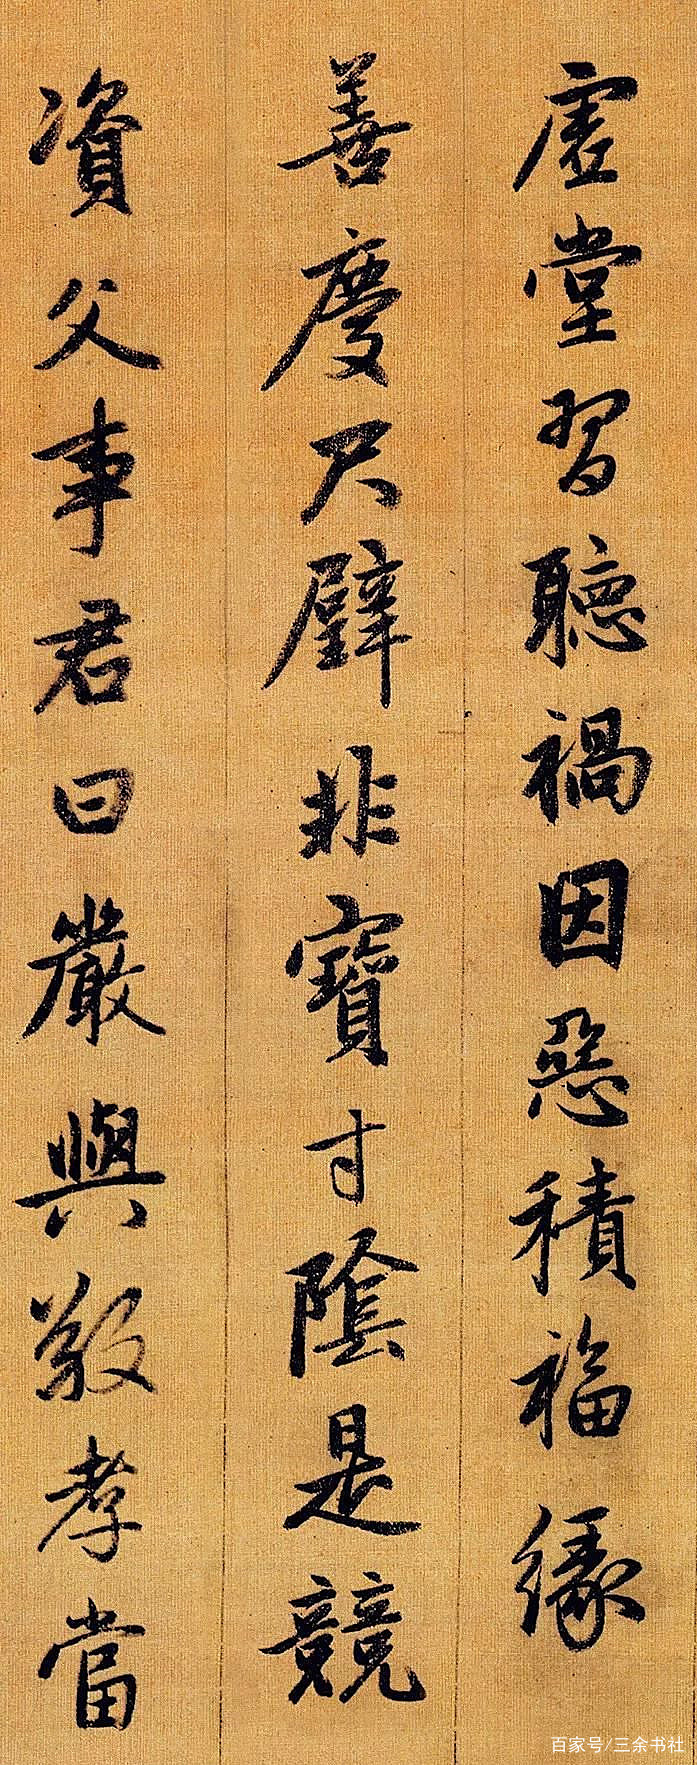 虛堂習聽禍因惡積福緣
善慶尺璧非寶寸陰是競
資父事君曰嚴與敬孝當
百家号/三余书社